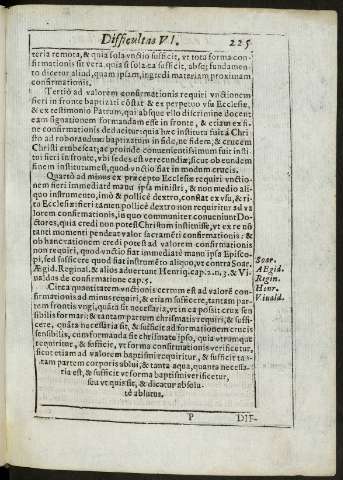 Difficultas VI.
225
teria remota, & quia sola vnctio sufficit, vt tota forma con-
firmationis sit vera. quia si sola ea sufficit, absq; fundamen-
to dicetur aliud, quam ipsam, ingredi materiam proximam
confirmationis.
Tertiò ad valorem confirmationis requiri vnctionem
fieri in fronte baptizati cõstat & ex perpetuo vsu Ecclesiæ,
& ex testimonio Patrum, qui absque vllo discrimine docent
eam signationem formandam esse in fronte, & etiam ex fi-
ne confirmationis deducitur: quia hæc instituta fuit à Chri-
sto ad roborandum baptizatum in fide, ne fidem, & crucem
Christi erubescat; ac proinde conuenientissimum fuit insti-
tui fieri in fronte, vbi sedes est verecundiæ, sicut ob eundem
finem institutum est, quod vnctio fiat in modum crucis.
Quartò ad minus ex præcepto Ecclesiæ requiri vnctio-
nem fieri immediatè manu ipsa ministri, & non medio ali-
quo instrumento, imò & pollicè dextro, constat ex vsu, & ri-
tu Ecclesiæ: fieri tamen pollicè dextro non requiritur ad va
lorem confirmationis, in quo communiter conueniunt Do-
ctores, quia credi non potest Christum instituisse, vt ex re nõ
tanti momenti pendeat valor sacramẽti confirmationis: &
ob hanc rationem credi potest ad valorem confirmationis
non requiri, quod vnctio fiat immediatè manu ipsa Episco-
pi, sed sufficere quod fiat instrumẽto aliquo, vt contra Soar.
Ægid. Reginal. & alios aduertunt Henriq. cap. 2. n. 3. & Vi-
ualdas de confirmatione cap. 5.
Soar.
AEgid.
Regin.
Henr.
Viuald.
Circa quantitatem vnctionis certum est ad valorẽ con-
firmationis ad minus requiri, & etiam sufficere, tantam par-
tem frontis vngi, quãta sit necessaria, vt in ea possit crux sen
sibilis formari: & tantam partem chrismatis requiri, & suffi-
cere, quãta necessaria sit, & sufficit ad formationem crucis
sensibilis, cum formanda sit chrismate ipso, quia vtrumque
requiritur, & sufficit, vt forma confirmationis verificetur,
sicut etiam ad valorem baptismi requiritur, & sufficit tan-
tam partem corporis ablui, & tanta aqua, quanta necessa-
ria est, & sufficit vt forma baptismi verificetur,
seu vt quis sit, & dicatur absolu-
tè ablutus.
P
DIF-